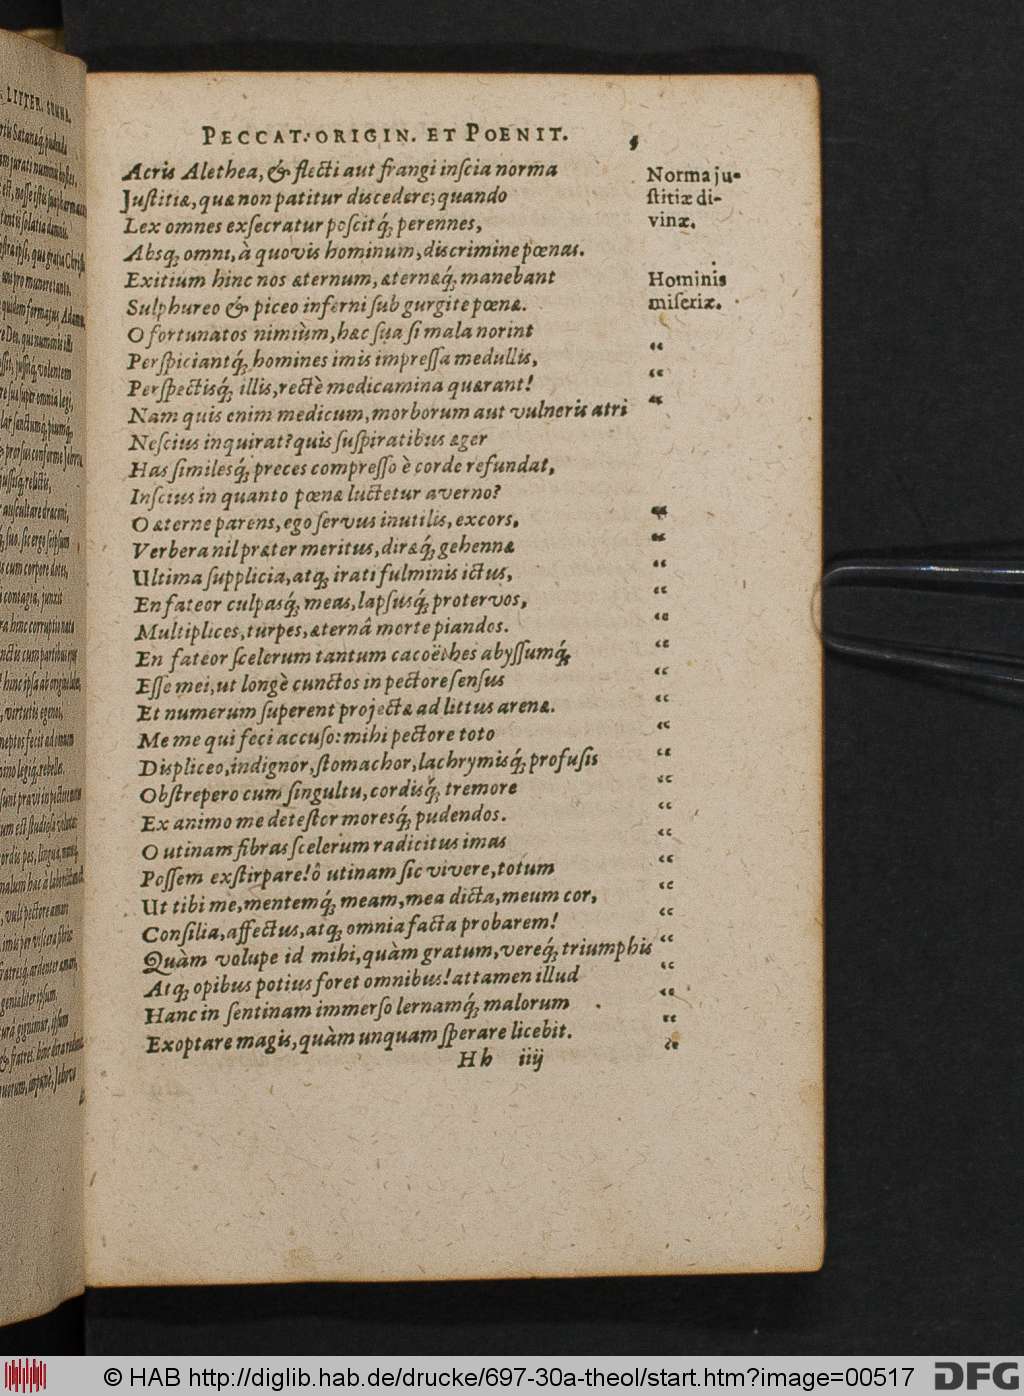 PECCAT. ORIGIN. ET POENIT. 5
Acris Alethea, & flecti aut frangi inscia norma
Justitiæ, quæ non patitur discedere; quando
Lex omnes exsecratur poscitq́; perennes,
Absq; omni, à quovis hominum, discrimine pœnas.
Exitium hinc nos æternum, æternæq́; manebant
Sulphureo & piceo inferni sub gurgite pœnæ.
O fortunatos nimiùm, hæc sua si mala norint
Perspiciantq́; homines imis impressa medullis,
Perspectisq́; illis, rectè medicamina quærant!
Nam quis enim medicum, morborum aut vulneris atri
Nescius inquirat? quis suspiratibus æger
Has similesq́; preces compresso è corde refundat,
Inscius in quanto pœnæ luctetur averno?
O æterne parens, ego servus inutilis, excors,
Verbera nil præter meritus, diræq́; gehennæ
Ultima supplicia, atq; irati fulminis ictus,
En fateor culpasq́; meas, lapsusq́; protervos,
Multiplices, turpes, æternâ morte piandos.
En fateor scelerum tantum cacoëthes abyssumq́;
Esse mei, ut longè cunctos in pectore sensus
Et numerum superent projectæ ad littus arenæ.
Me me qui feci accuso: mihi pectore toto
Displiceo, indignor, stomachor, lachrymisq́; profusis
Obstrepero cum singultu, cordisq́; tremore
Ex animo me detestor moresq́; pudendos.
O utinam fibras scelerum radicitus imas
Possem exstirpare! ô utinam sic vivere, totum
Ut tibi me, mentemq́; meam, mea dicta, meum cor,
Consilia, affectus, atq; omnia facta probarem!
Quàm volupe id mihi, quàm gratum, vereq́; triumphis
Atq; opibus potius foret omnibus! attamen illud
Hanc in sentinam immerso lernamq́; malorum
Exoptare magis, quàm unquam sperare licebit.
Hh iiij
Norma ju-
stitiæ di-
vinæ.
Hominis
miseriæ.
© HAB http://diglib.hab.de/drucke/697-30a-theol/start.htm?image=00517
DFG